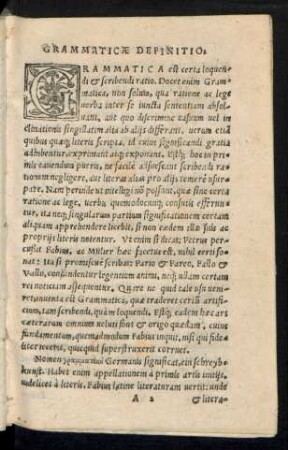 GRAMMATICÆ DEFINITIO.
GRAMMATICA est certa loquen
di & scribendi ratio. Docet enim Gram
matica, non solum, qua ratione ac lege
uerba inter se iuncta sententiam absol
uant, aut quo discrimine casuum uel in
clinationis singula alia ab alijs differant, uerum etiã
quibus quæq; literis scripta, id cuius significandi gratia
adhibentur, exprimant atq; exponant. Estq; hoc in pri
mis cauendum pueris, ne facile assuescant scribendi ra
tionem negligere, aut literas alias pro alijs temere usur
pare. Nam perinde ut intellegi nõ possunt, quæ sine certa
ratione ac lege, uerbis, quemodocunq; consutis efferun
tur, ita neq; singularum partium significationem certam
aliquam apprehendere licebit, si non eædem illæ suis ac
proprijs literis notentur. Ut enim si dicas; Petrus per
cussus Fabius, ac Mulier hæc factus est, nihil certi so
nat: ita si promiscuè scribas: Pario & Pareo, Fallo &
Vallo, confundentur legentium animi, neq; ullam certam
rei noticiam assequentur. Quare ne quid tale usu ueni
ret, inuenta est Grammatica, quæ traderet certũ artifi
cium, tam scribendi, quàm loquendi. Estq; eadem hæc ars
cæterarum omnium uelut fons & origo quædam, cuius
fundamentum, quemadmodum Fabius inquit, nisi qui fide
liter iecerit, quicquid superstruxerit corruet.
Nomen γραμματικὴ Germanis significat, ein schreyb-
kunst. Habet enim appellationem à primis artis initijs,
uidelicet à literis. Fabius latine literaturam uertit: unde
A 2 & litera-